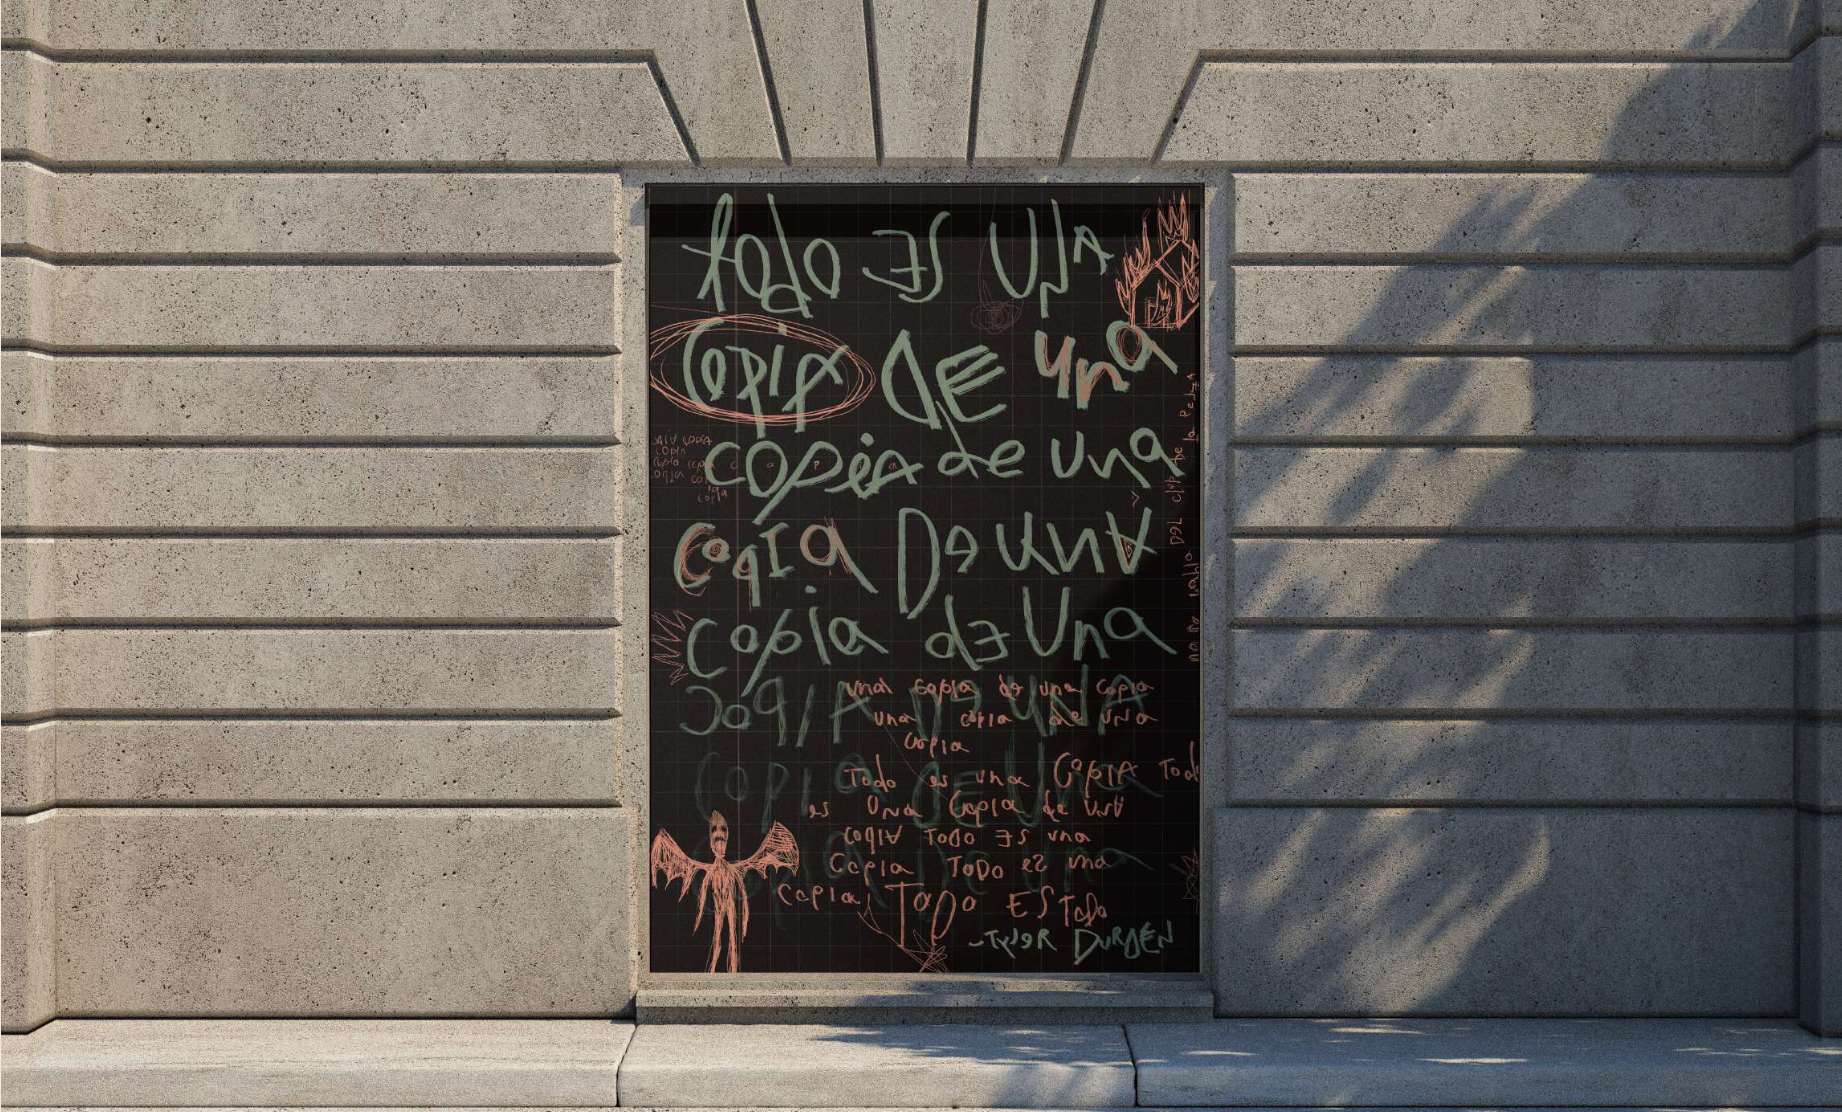 todo ES UNA
Copia DE una
copia de una
copia De unA
copia dE Una
copIA DE UNA
una copia de una copia
una copia de una
copia
copia de una
Todo es una CopIA Todo
es una Copia de unA
copiA TODO ES una
Copia TODO es una
copia de una
copia, TODO ES Todo
-TyleR DURDEN
copia copia
copia
copia
copia
no se habla DEL club De la PeleA